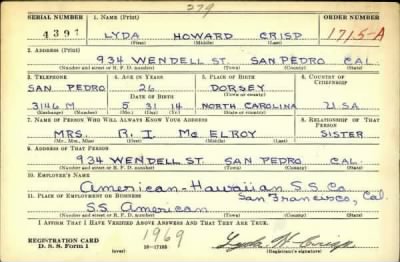 279
SERIAL NUMBER 1. NAME (Print) ORDER NUMBER
4397 LYDA HOWARD CRISP 1715-A
(First) (Middle) (Last)
2. ADDRESS (Print)
934 WENDELL ST. SAN PEDRO CAL.
(Number and street or R. F. D. number) (Town) (County) (State)
3. TELEPHONE 4. AGE IN YEARS 5. PLACE OF BIRTH 6. COUNTRY OF CITIZENSHIP
SAN PEDRO 26 DORSEY
DATE OF BIRTH (Town or county)
3146 M 5 31 14 NORTH CAROLINA USA
(Exchange) (Number) (Mo.) (Day) (Yr.) (State or country)
7. NAME OF PERSON WHO WILL ALWAYS KNOW YOUR ADDRESS 8. RELATIONSHIP OF THAT PERSON
MRS. R. I. Mc ELROY SISTER
(Mr., Mrs., Miss) (First) (Middle) (Last)
9. ADDRESS OF THAT PERSON
934 WENDELL ST. SAN PEDRO CAL.
(Number and street or R. F. D. number) (Town) (County) (State)
10. EMPLOYER'S NAME
American-Hawaiian S.S. Co.
11. PLACE OF EMPLOYMENT OR BUSINESS San Francisco, Cal.
S.S. American
(Number and street or R. F. D. number) (Town) (County) (State)
I AFFIRM THAT I HAVE VERIFIED ABOVE ANSWERS AND THAT THEY ARE TRUE.
REGISTRATION CARD 1969 Lyda H. Crisp
D. S. S. Form 1 (over) 16-17105 (Registrant's signature)